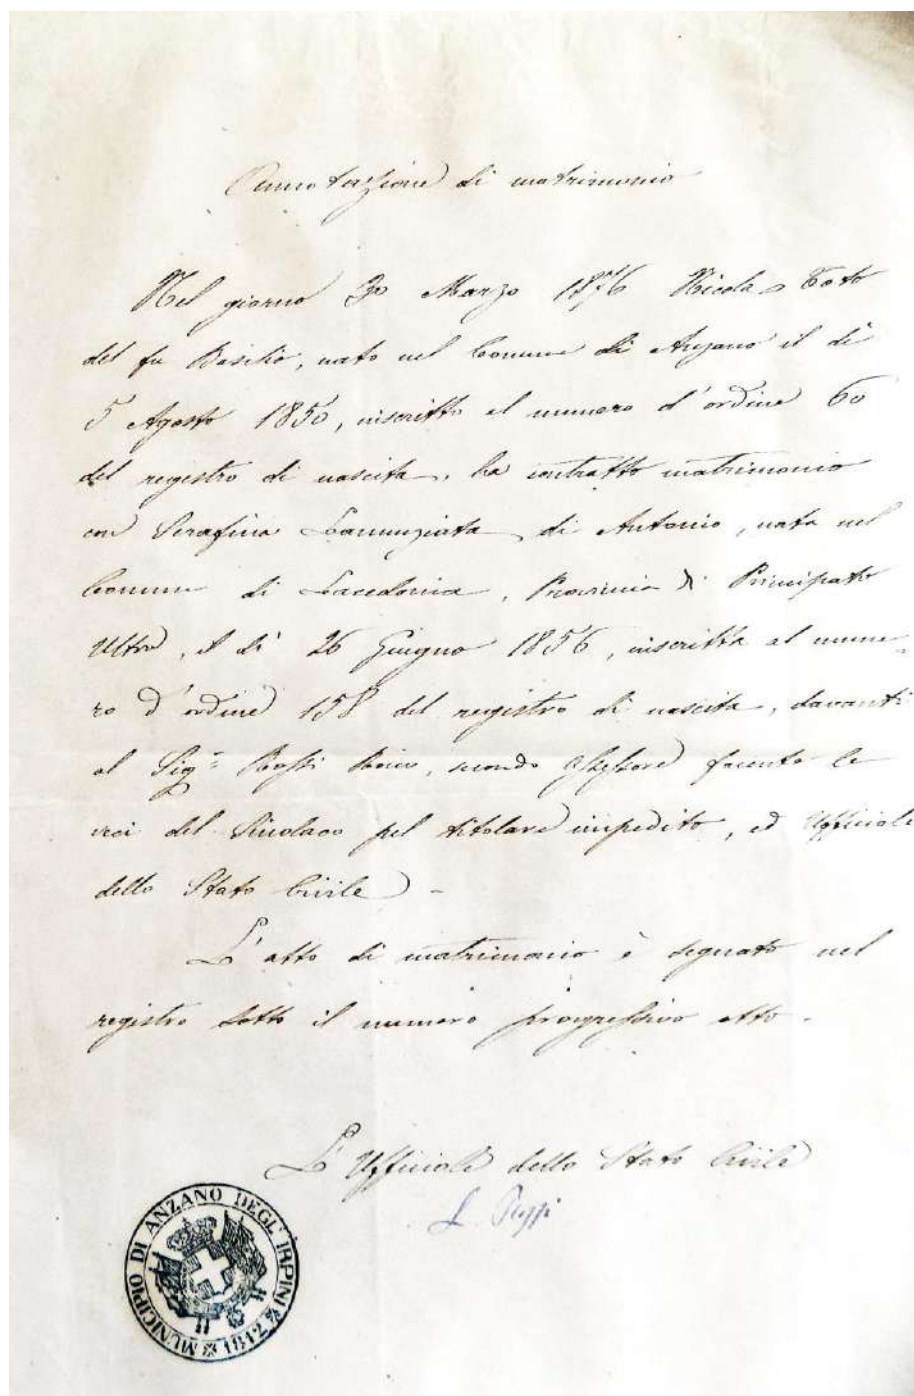 Annotazione di matrimonio
Nel giorno 30 Marzo 1876 Nicola Toto
del fu Basilio, nato nel Comune di Anzano il dì
5 Agosto 1850, inscritto al numero d'ordine 60
del registro di nascita, ha contratto matrimonio
con Serafina Lannunziata di Antonio, nata nel
Comune di Lacedonia, Provincia di Principato
Ultra, il dì 26 Giugno 1856, inscritta al nume-
ro d'ordine 158 del registro di nascita, davanti
al Sigr Rossi Rocco, secondo Assessore facente le
veci del Sindaco pel titolare impedito, ed Ufficiale
dello Stato Civile -
L'atto di matrimonio è segnato nel
registro sotto il numero progressivo otto.
L'Ufficiale dello Stato Civile
MUNICIPIO DI ANZANO DEGL' IRPINI